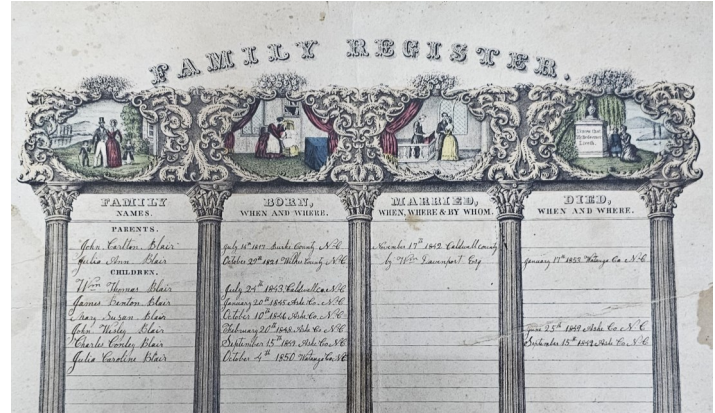 FAMILY REGISTER.
I know that
my Redeemer
Liveth.
FAMILY NAMES. BORN, WHEN AND WHERE. MARRIED, WHEN, WHERE & BY WHOM. DIED, WHEN AND WHERE.
PARENTS.
John Carlton Blair July 14th 1817 Burke County N.C. November 17th 1842 Caldwell county
Julia Ann Blair October 29th 1821 Wilkes County N.C. by Wm Davenport Esq January 17th 1853 Watauga Co N.C.
CHILDREN.
Wm Thomas Blair July 24th 1843 Caldwell co N.C.
James Benton Blair January 20th 1845 Ashe Co. N.C.
Mary Susan Blair October 10th 1846 Ashe Co. N.C.
John Wesley Blair February 20th 1848 Ashe Co. N.C. June 25th 1849 Ashe Co. N.C.
Charles Conley Blair September 15th 1849 Ashe Co. N.C. September 15th 1849 Ashe Co. N.C.
Julia Caroline Blair October 4th 1850 Watauga Co. N.C.